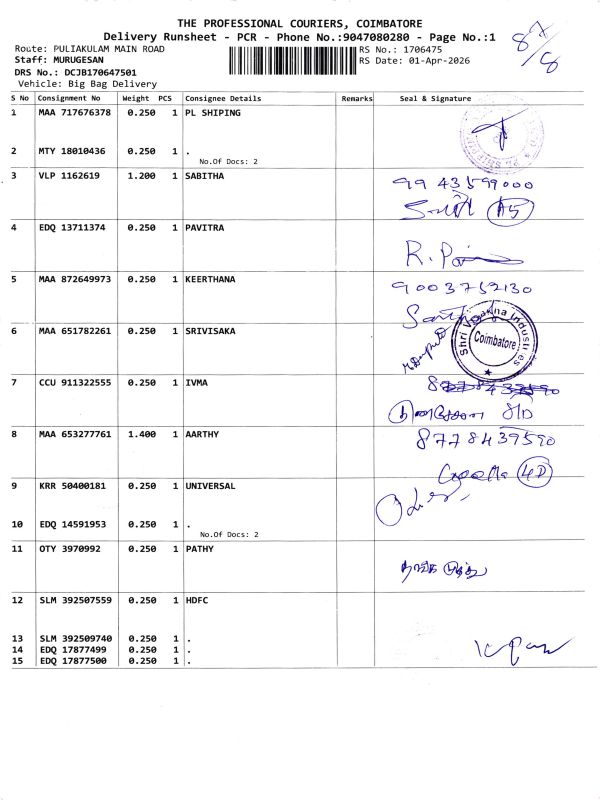 THE PROFESSIONAL COURIERS, COIMBATORE
Delivery Runsheet - PCR - Phone No.:9047080280 - Page No.:1
87/8
Route: PULIAKULAM MAIN ROAD
RS No.: 1706475
Staff: MURUGESAN
RS Date: 01-Apr-2026
DRS No.: DCJB170647501
Vehicle: Big Bag Delivery
S No Consignment No Weight PCS Consignee Details Remarks Seal & Signature
1 MAA 717676378 0.250 1 PL SHIPING
2 MTY 18010436 0.250 1 .
No.Of Docs: 2
3 VLP 1162619 1.200 1 SABITHA 9943599000
A5
4 EDQ 13711374 0.250 1 PAVITRA
R.
5 MAA 872649973 0.250 1 KEERTHANA 9003752130
6 MAA 651782261 0.250 1 SRIVISAKA
Coimbatore
7 CCU 911322555 0.250 1 IVMA
8 MAA 653277761 1.400 1 AARTHY 8778439590
4D
9 KRR 50400181 0.250 1 UNIVERSAL
10 EDQ 14591953 0.250 1 .
No.Of Docs: 2
11 OTY 3970992 0.250 1 PATHY
12 SLM 392507559 0.250 1 HDFC
13 SLM 392509740 0.250 1 .
14 EDQ 17877499 0.250 1 .
15 EDQ 17877500 0.250 1 .